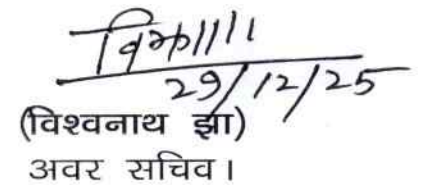 29/12/25
(विश्वनाथ झा)
अवर सचिव।